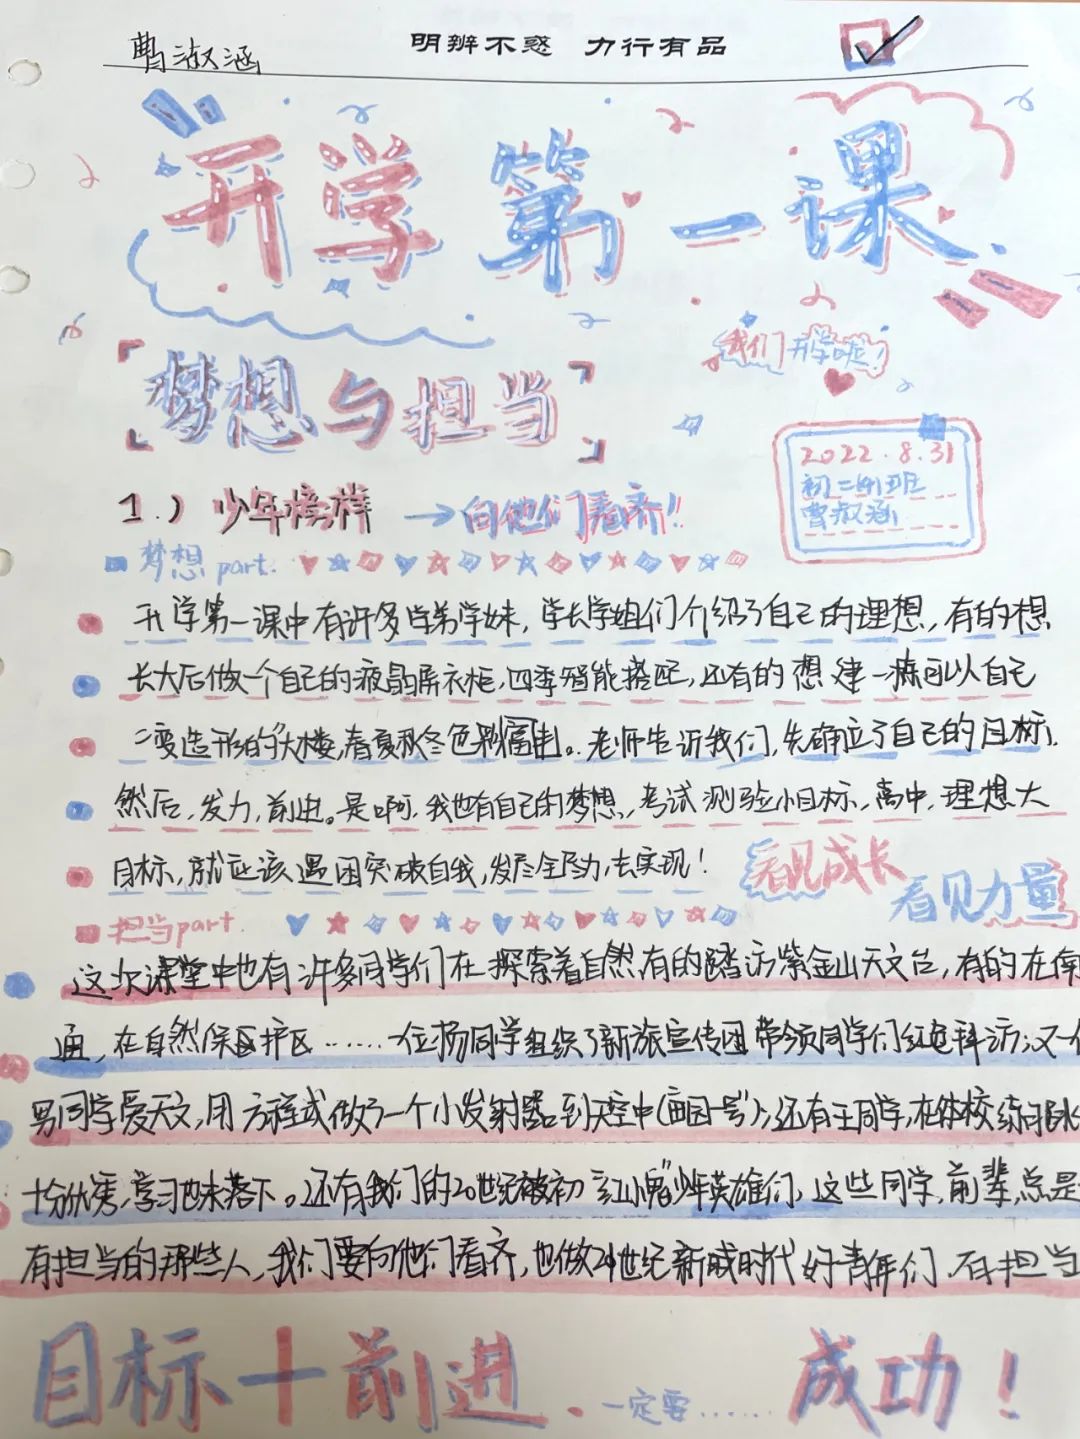 曹淑涵
明辨不惑 力行有品
开学第一课
我们开学啦!
梦想与担当
2022.8.31
初二 班
曹淑涵
1.) 少年榜样 → 向他们看齐!!
梦想part.
开学第一课中有许多学弟学妹,学长学姐们介绍了自己的理想,有的想
长大后做一个自己的液晶屏衣柜,四季智能搭配,还有的想建一栋可以自己
变造形的"大楼,春夏秋冬色彩富由。老师告诉我们,先确立了自己的目标,
然后,发力,前进。是啊,我也有自己的梦想,考试测验小目标,高中,理想大
目标,就应该遇困突破自我,发尽全力,去实现!
看见成长
看见力量
担当part.
这次课堂中也有许多同学们在探索着自然,有的踏访紫金山天文台,有的在南
通,在自然保护区……一位杨同学组织了新旅宣传团带领同学们红色拜访;又一
男同学爱天文,用方程式做了一个小发射器到天空中( 号);还有王同学,在体校练习
十分优秀,学习也未落下。还有我们的20世纪被初 红小鬼"少年英雄们,这些同学,前辈,总是
有担当的那些人,我们要向他们看齐,也做21世纪新时代好青年们,有担当
目标+前进.一定要……成功!